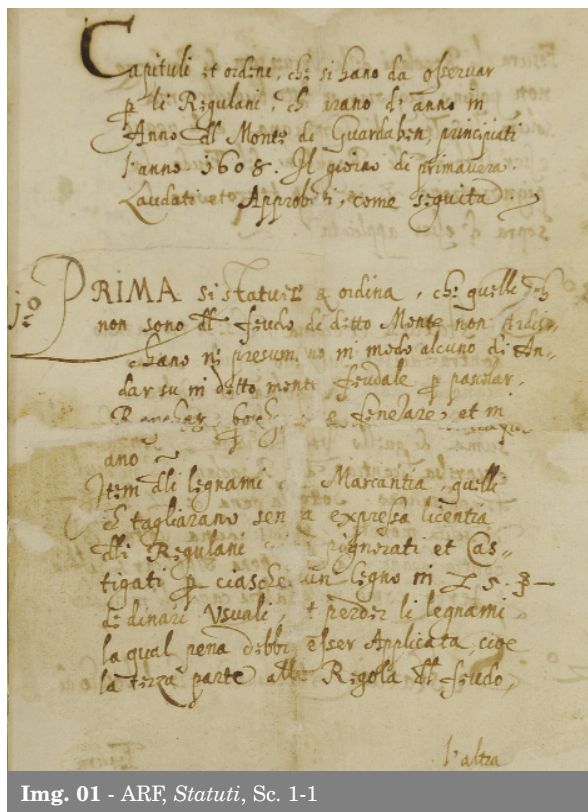 Capituli et ordene, che si hano da osservar
p li Regulani, ch irano de anno in
Anno dl Monte di Guardaben, principiati
l'anno 1608. Il giorno di primavera.
Laudati et Approbati, come seguita.
jo PRIMA si statuisse & ordina, che quelle ch
non sono dl feudo di detto Monte non ardis„
chano ne presumano in modo alcuno di An„
dar su in detto monte feudale p pascolar,
e fenetare, et in
ano
Item dli legnami Marcantia, quelli
ch tagliarano senza expressa licentia
dlli Regulani pignorati et Cas„
tigati p ciascheun legno in
de dinari Usuali, et perder li legnami„
la qual pena debbi esser Applicata, cioe
la terza parte alla Regola dl feudo,
l'altra
Img. 01 - ARF, Statuti, Sc. 1-1